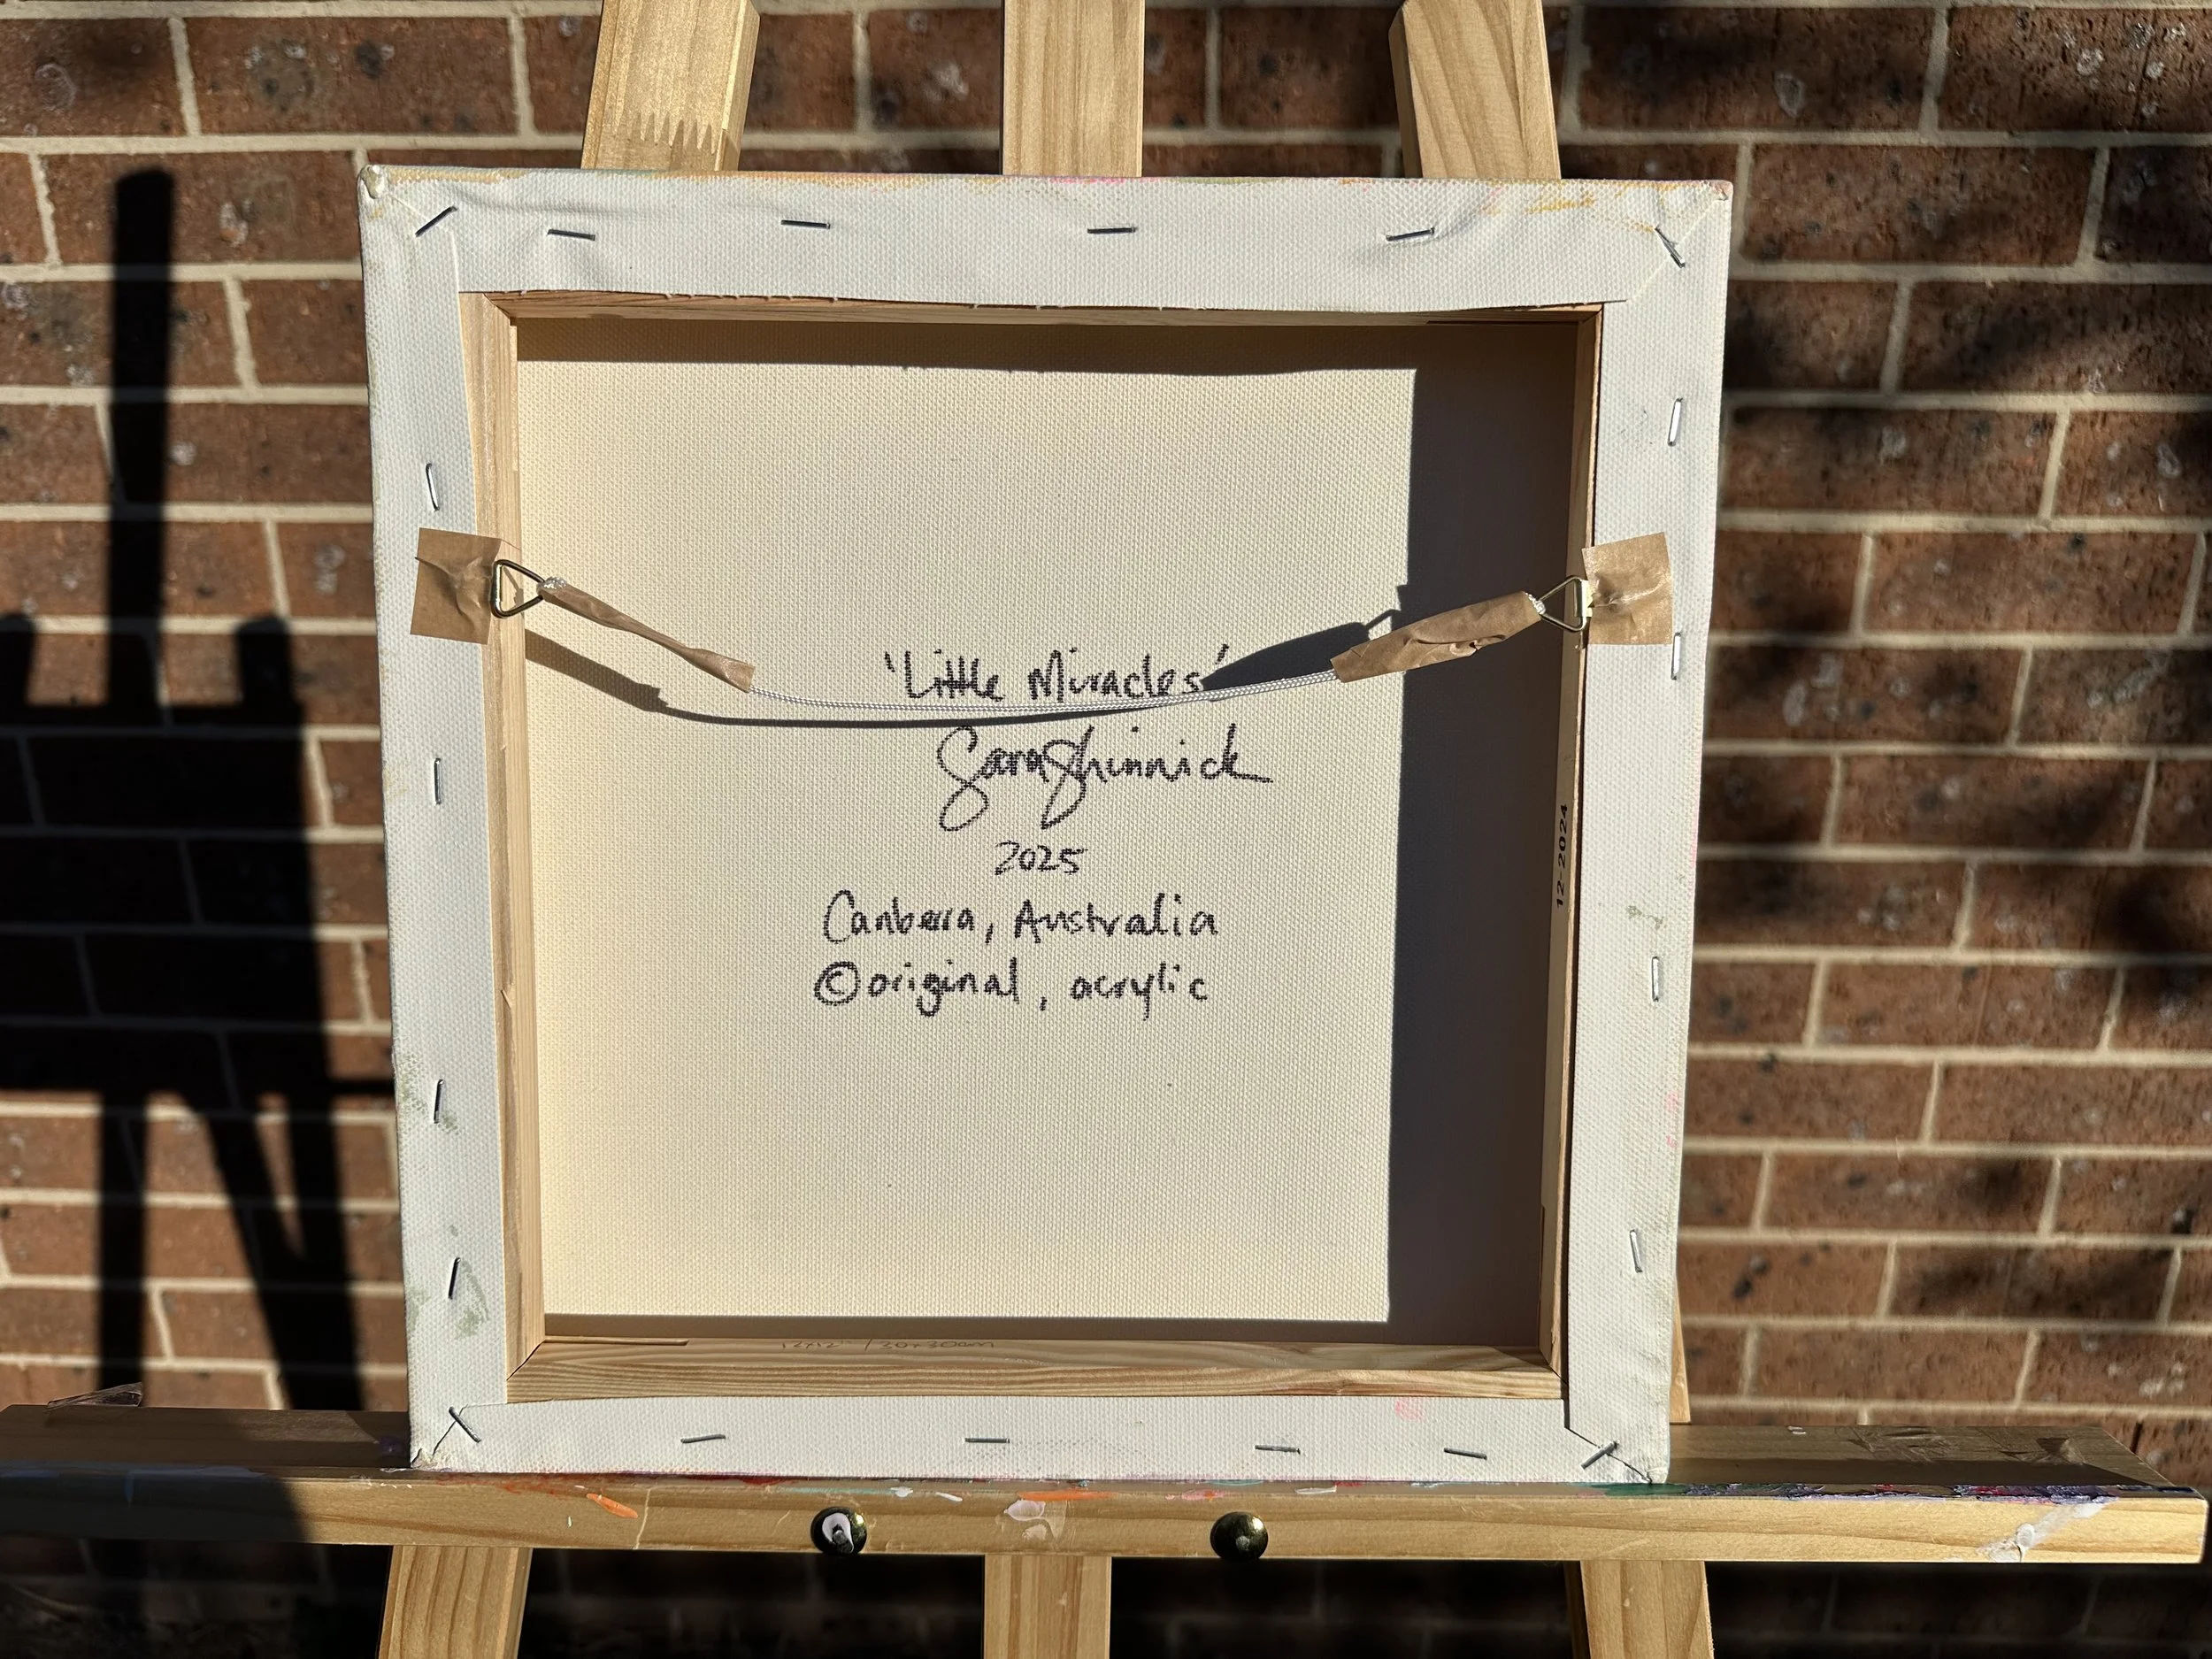 'Little Miracles'
Sara Shinnick
2025
Canberra, Australia
©original, acrylic
12-2024
12x12" / 30x30cm